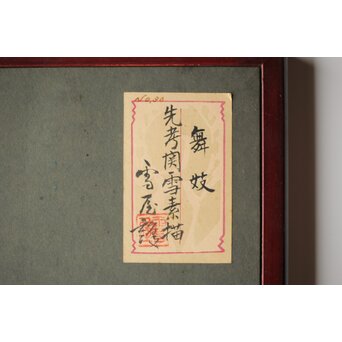 No.30
舞妓
先考関雪素描
雪屋